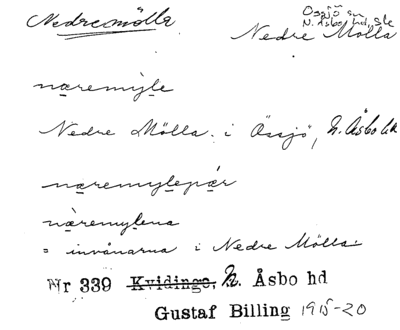 Nedremölla
Össjö sn
N. Åsbo hd, Sk
Nedre Mölla
næremỳle
Nedre Mölla i Össjö, N. Åsbo hd
næremylepær
nàremylena
= invånarna i Nedre Mölla.
Nr 339 Kvidinge, N. Åsbo hd
Gustaf Billing 1915-20